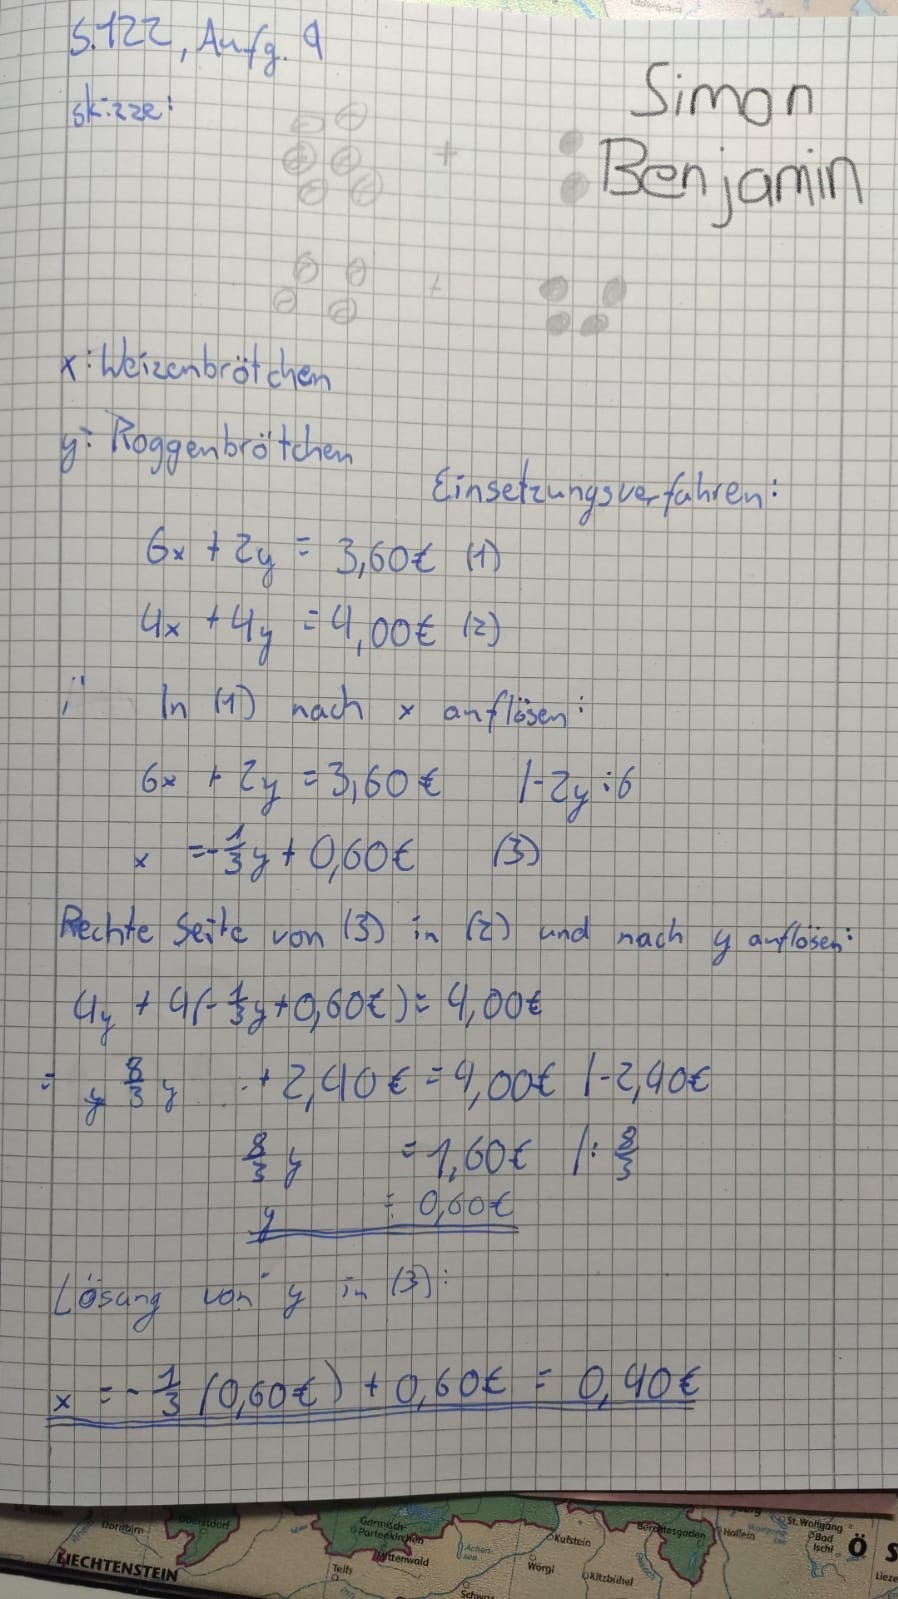 S.122, Aufg. 9
Skizze:
Simon
Benjamin
+
+
x: Weizenbrötchen
y: Roggenbrötchen
Einsetzungsverfahren:
6x + 2y = 3,60€ (1)
4x + 4y = 4,00€ (2)
In (1) nach x auflösen:
6x + 2y = 3,60€ |-2y :6
x = -1/3 y + 0,60€ (3)
Rechte Seite von (3) in (2) und nach y auflösen:
4y + 4(-1/3 y + 0,60€) = 4,00€
= 8/3 y + 2,40€ = 4,00€ |-2,40€
8/3 y = 1,60€ |: 8/3
y = 0,60€
Lösung von y in (3):
x = -1/3 (0,60€) + 0,60€ = 0,40€
Dornbirn
Oberstdorf
Garmisch-
Partenkirchen
Mittenwald
Achen-
see
Kufstein
Berchtesgaden
Hallein
St. Wolfgang
Bad
Ischl
Ö S
LIECHTENSTEIN
Telfs
Inn
Schwaz
Wörgl
Kitzbühel
Lieze